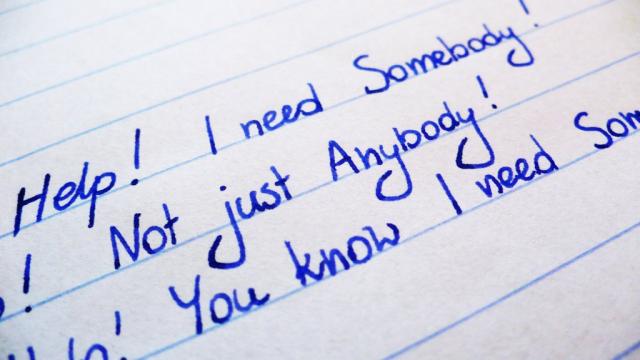 Help! I need Somebody!
! Not just Anybody!
You know I need Som